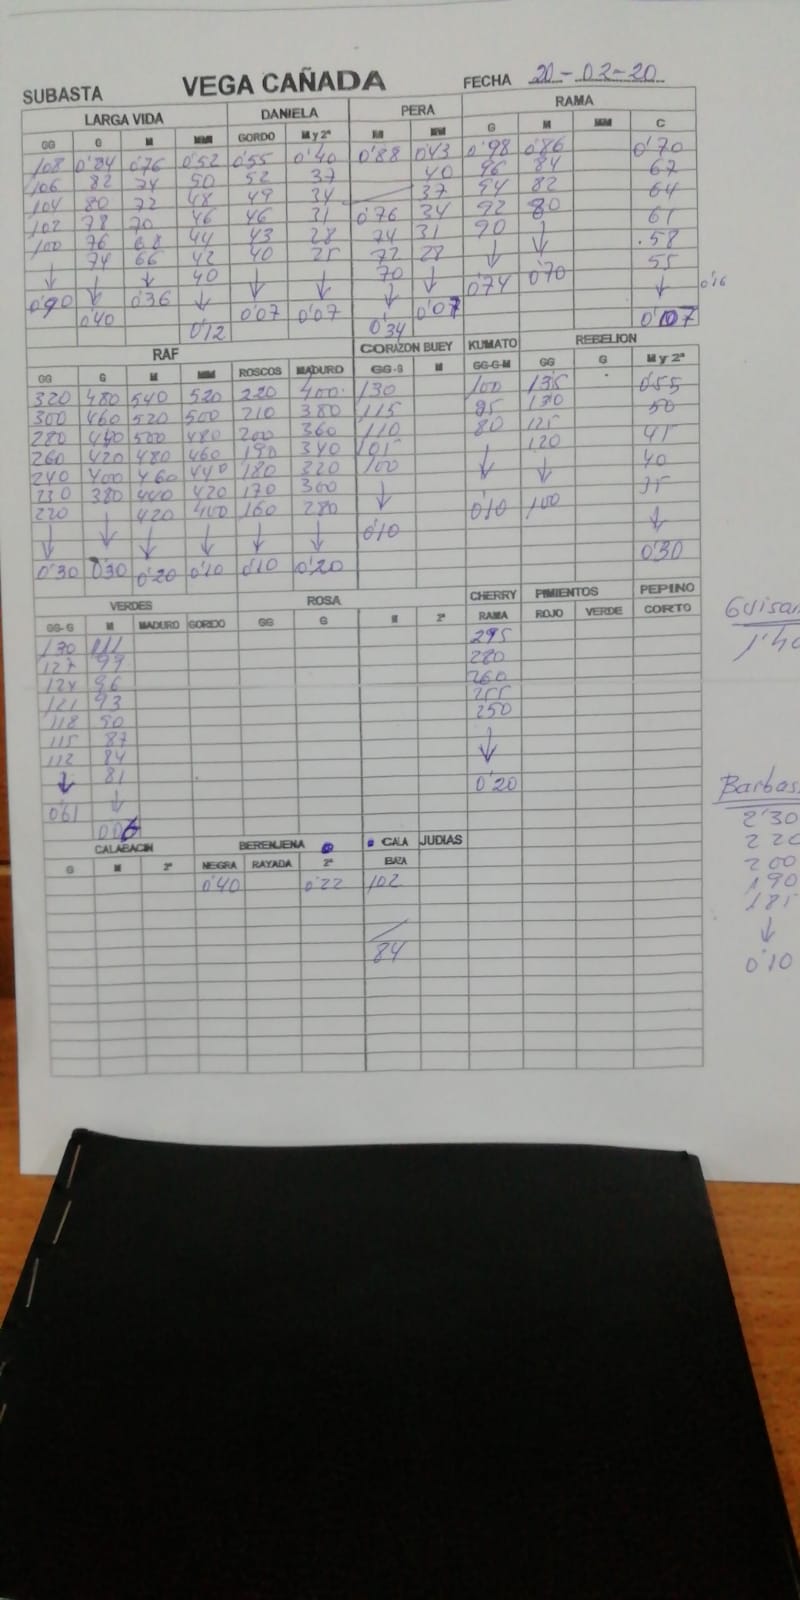 SUBASTA VEGA CAÑADA FECHA 20-02-20
LARGA VIDA DANIELA PERA RAMA
GG G M MM GORDO M y 2ª M MM G M MM C
108 0'84 0'76 0'52 0'55 0'40 0'88 0'43 0'98 0'86 0'70
106 82 74 50 52 37 40 96 84 67
104 80 72 48 49 34 37 94 82 64
102 78 70 46 46 31 0'76 34 92 80 61
100 76 68 44 43 28 74 31 90 ↓ 58
↓ 74 66 42 40 25 72 28 ↓ 55
↓ ↓ 40 ↓ ↓ 70 ↓ 0'74 0'70 ↓ 0'16
0'90 0'40 0'36 ↓ 0'07 0'07 ↓ 0'07 0'107
0'12 0'34
RAF CORAZON BUEY KUMATO REBELION
GG G M MM ROSCOS MADURO GG-G M GG-G-M GG G M y 2ª
320 480 540 520 220 400 130 100 135 0'55
300 460 520 500 210 380 115 95 130 50
280 440 500 480 200 360 110 80 125 45
260 420 480 460 190 340 105 120 40
240 400 460 440 180 320 100 ↓ ↓ 35
230 380 440 420 170 300 ↓ 0'10 100 ↓
220 ↓ 420 400 160 280 0'10
↓ ↓ ↓ ↓ ↓ 0'30
0'30 0'30 0'20 0'10 0'10 0'20
VERDES ROSA CHERRY PIMIENTOS PEPINO
GG-G M MADURO GORDO GG G M 2ª RAMA ROJO VERDE CORTO
130 111 295
127 99 280
124 96 260
121 93 255
118 90 250
115 87 ↓
112 84
↓ 81 0'20
0'61 ↓
006
CALABACIN BERENJENA CALA JUDIAS
G M 2ª NEGRA RAYADA 2ª BAZA
0'40 0'22 102
84
Guisan
1'40
Barbas
2'30
2 20
200
190
185
↓
0'10